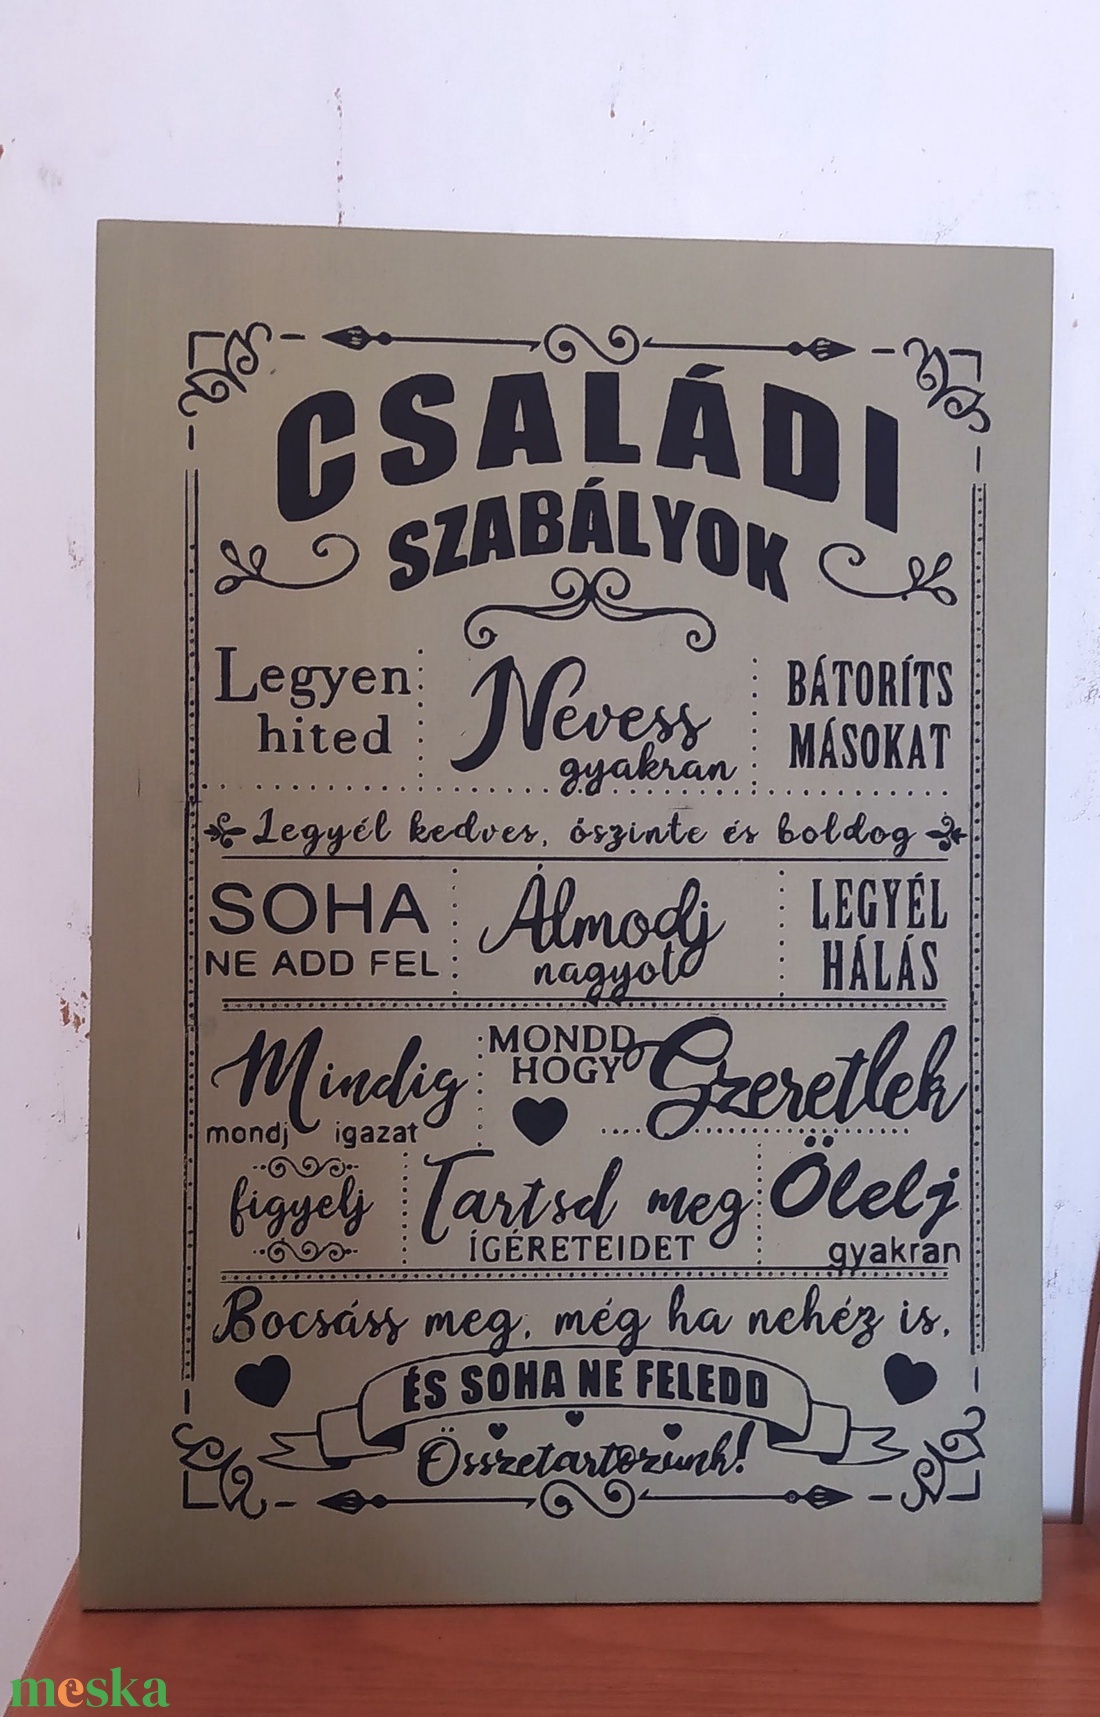 CSALÁDI
SZABÁLYOK
Legyen
hited
Nevess
gyakran
BÁTORÍTS
MÁSOKAT
Legyél kedves, őszinte és boldog
SOHA
NE ADD FEL
Álmodj
nagyot
LEGYÉL
HÁLÁS
Mindig
mondj igazat
MONDD
HOGY
Szeretlek
figyelj
Tartsd meg
ÍGÉRETEIDET
Ölelj
gyakran
Bocsáss meg, még ha nehéz is,
ÉS SOHA NE FELEDD
Összetartozunk!
meska